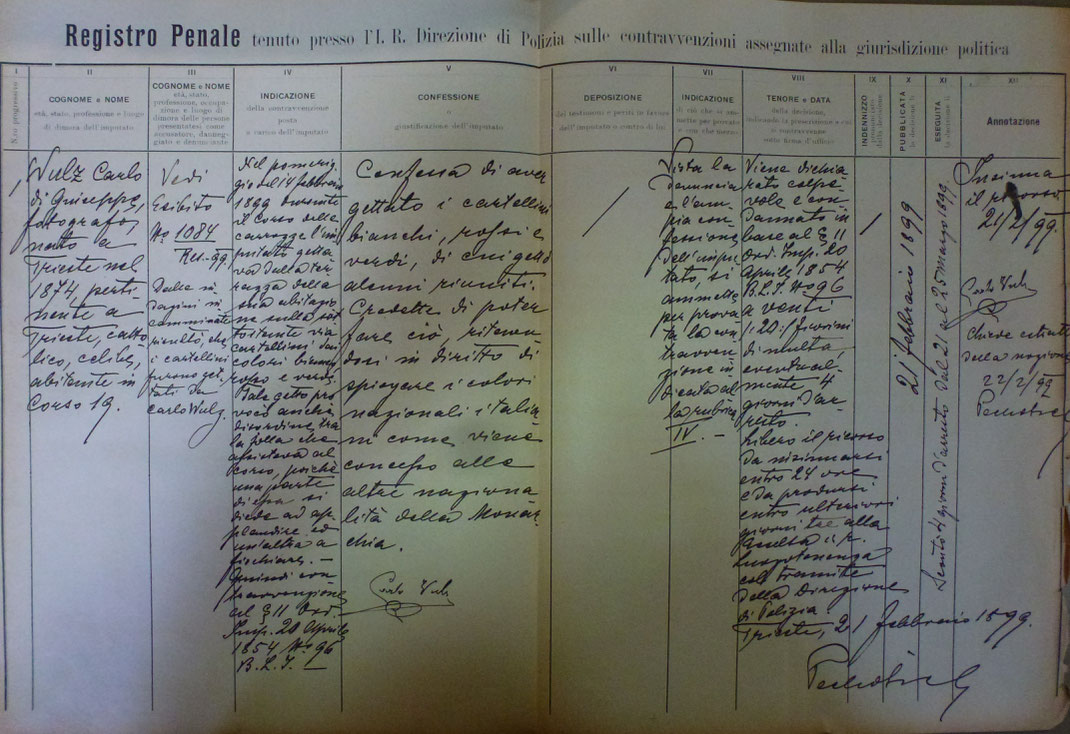 Registro Penale tenuto presso l'I. R. Direzione di Polizia sulle contravvenzioni assegnate alla giurisdizione politica
I
N.ro progressivo
II
COGNOME e NOME
età, stato, professione e luogo
di dimora dell'imputato
III
COGNOME e NOME
età, stato,
professione, occupa-
zione e luogo di
dimora delle persone
presentatesi come
accusatore, danneg-
giato e denunciante
IV
INDICAZIONE
della contravvenzione
posta
a carico dell'imputato
V
CONFESSIONE
o
giustificazione dell'imputato
VI
DEPOSIZIONE
dei testimoni e periti in favore
dell'imputato o contro di lui
VII
INDICAZIONE
di ciò che si am-
mette per provato
e con che mezzo
VIII
TENORE e DATA
della decisione,
indicando la prescrizione a cui
si contravvenne
sotto firma d'uffizio
IX
INDENNIZZO
pronunciato
dalla decisione
X
PUBBLICATA
la decisione il
XI
ESEGUITA
la decisione il
XII
Annotazione
1
Wulz Carlo
di Giuseppe,
fotografo,
nato a
Trieste nel
1874, perti-
nente a
Trieste, catto-
lico, celibe,
abitante in
Corso 19.
Vedi
Esibito
No 1084
Res.-99
Dalle in-
dagini in-
camminate
risultò, che
i cartellini
furono get-
tati da
Carlo Wulz.
Nel pomerig-
gio del 14 febbraio
1899 durante
il Corso delle
carrozze l'im-
putato getta-
va dalla ter-
razza della
sua abitazio-
ne sulla sot-
tostante via
cartellini dai
colori bianco,
rosso e verde.
Tale getto pro-
vocò anche
disordine tra
la folla che
assisteva al
Corso, poichè
una parte
di essa si
diede ad ap-
plaudire ed
un'altra a
fischiare. —
Quindi con-
travvenzione
al § 11 Ord.
Imp. 20 Aprile
1854 No 96
B. L. I. —
Confessa di aver
gettato i cartellini
bianchi, rossi e
verdi, di cui gettò
alcuni riuniti.
Credette di poter
fare ciò, ritenen-
dosi in diritto di
spiegare i colori
nazionali italia-
ni come viene
concesso alle
altre naziona-
lità della Monar-
chia.
Carlo Wulz
/
Vista la
denuncia
e l'am-
pia con-
fessione
dell'impu-
tato, si
ammette
per prova-
ta la con-
travven-
zione in-
dicata al-
la rubrica
IV. —
Viene dichia-
rato colpe-
vole e con-
dannato in
base al § 11
Ord. Imp. 20
Aprile 1854
B. L. I. No 96
a venti
:20:/ fiorini
di multa,
eventual-
mente 4
giorni d'ar-
resto.
Libero il ricorso
da insinuarsi
entro 24 ore
e da prodursi
entro ulteriori
giorni tre alla
Eccelsa i. r.
Luogotenenza
col tramite
della Direzione
di Polizia.
Trieste, 21 febbraio 1899.
/
21 febbraio 1899
Scontò 4 giorni d'arresto dal 21 al 25 marzo 1899.
Insinua
il ricorso
21/2/99.
Carlo Wulz
Chiede estratto
della
22/2/99